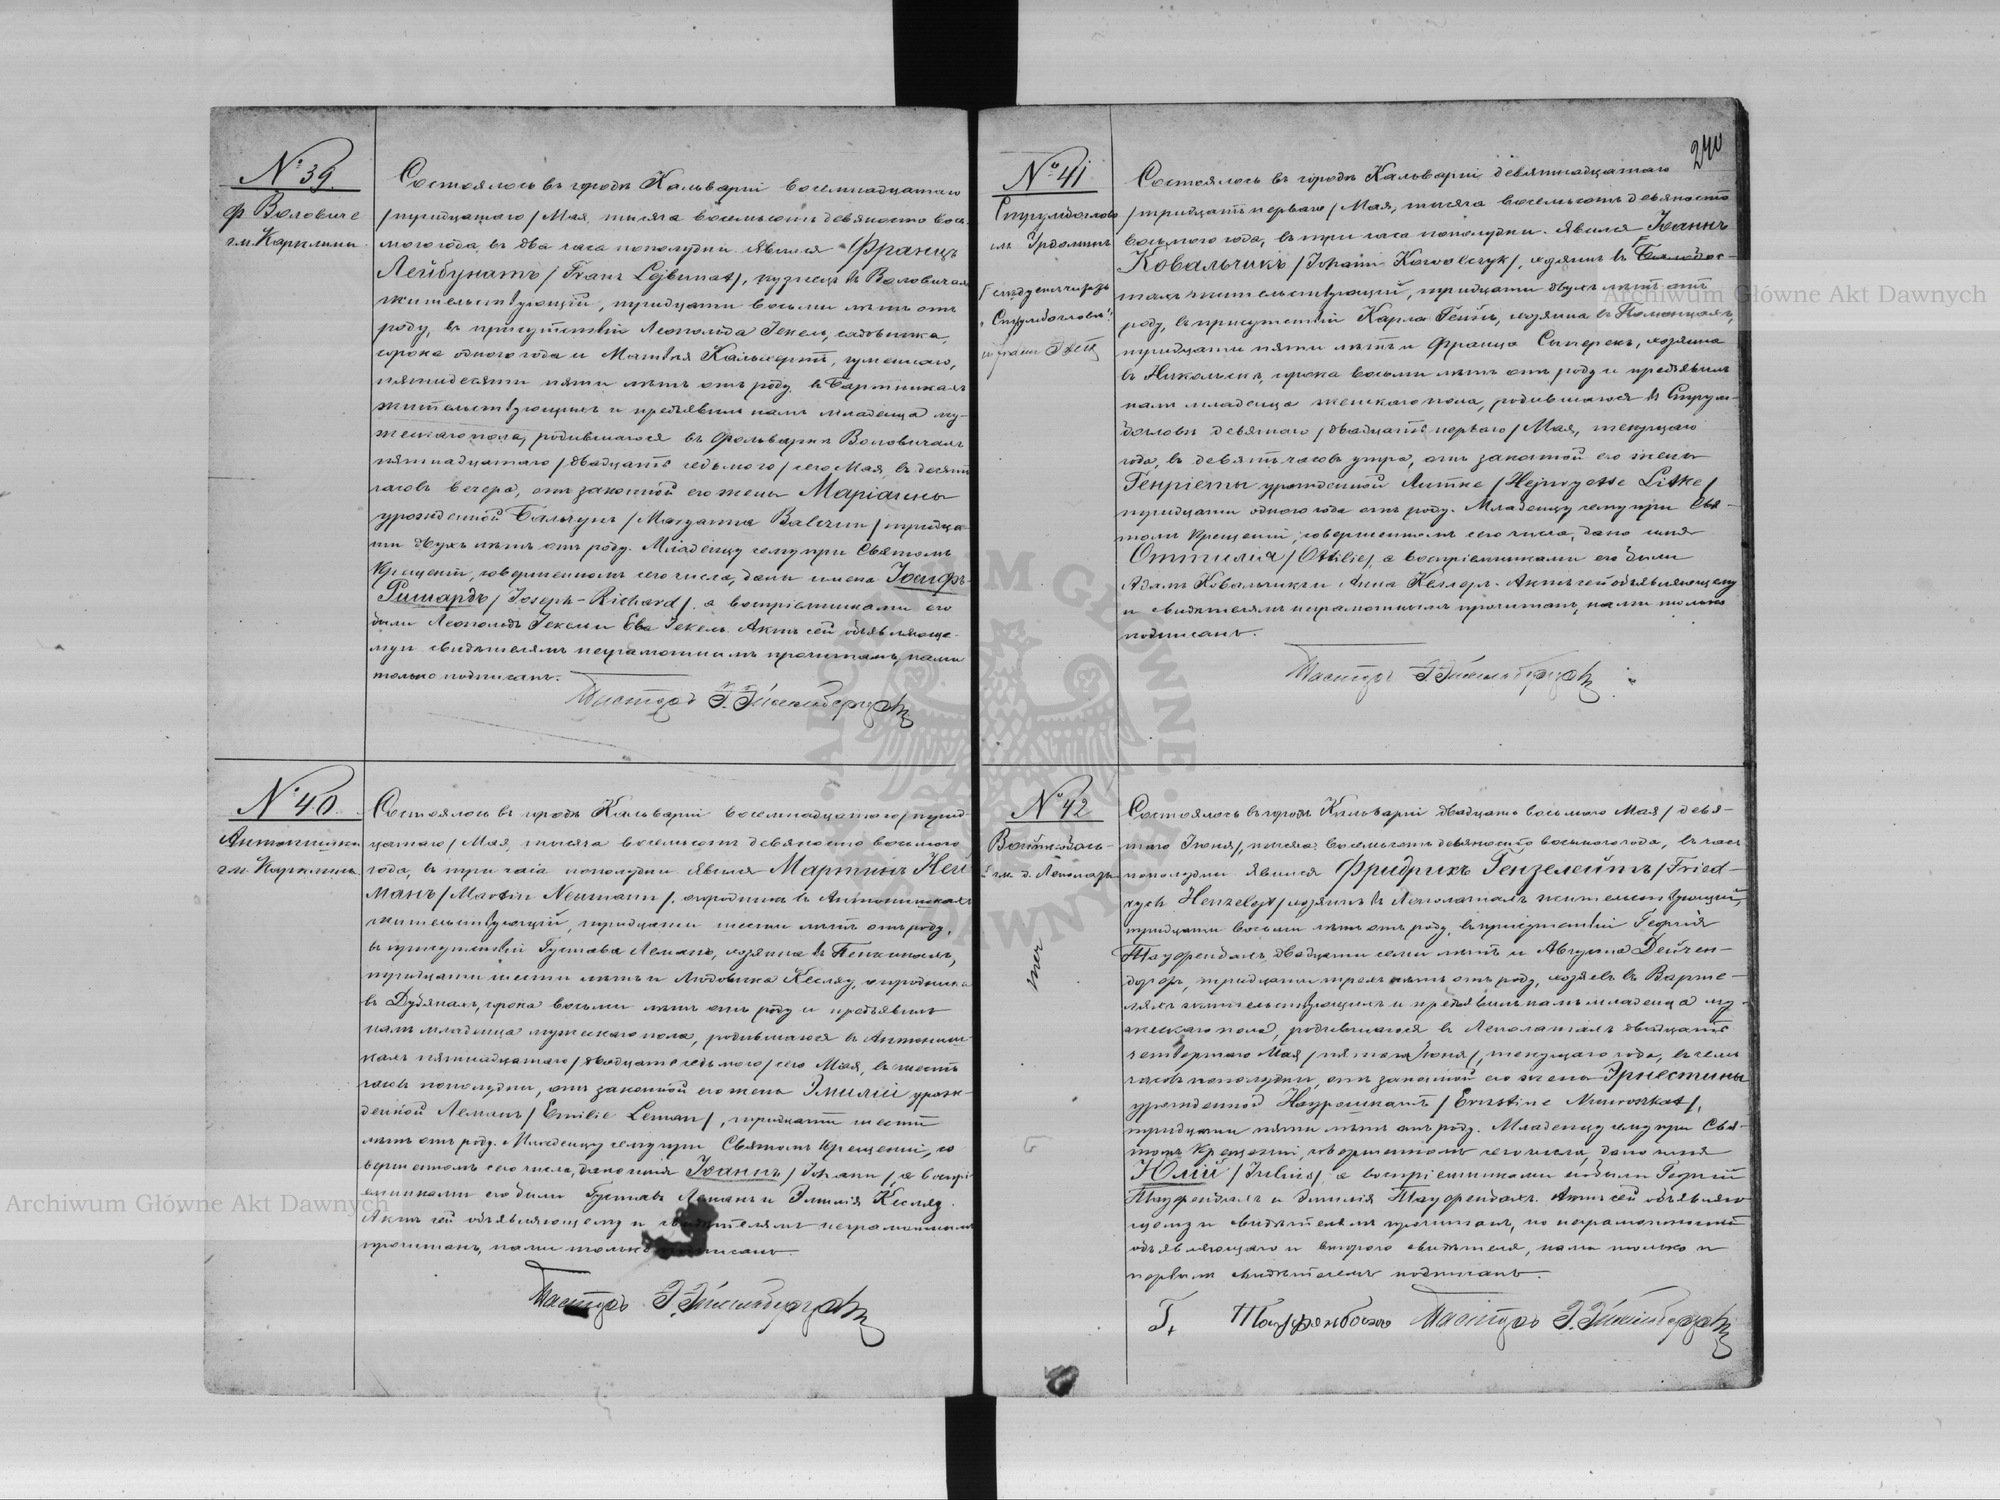 № 39
ф. Воловиче
гм. Кирклины
Состоялось въ городѣ Кальваріи восемнадцатаго
/тридцатаго/ Мая, тысяча восемьсотъ девяносто вось-
маго года, въ два часа пополудни. Явился Францъ
Лейбунатъ /Franz Lejbunat/, кузнецъ въ Воловичахъ
жительствующій, тридцати восьми лѣтъ отъ
роду, въ присутствіи Леопольда Іекель, садовника,
сорока одного года и Матвѣя Кальвертъ,
пятидесяти пяти лѣтъ отъ роду въ Бартникахъ
жительствующихъ и предъявилъ намъ младенца му-
жескаго пола, родившагося въ фольваркѣ Воловичахъ
пятнадцатаго /двадцать седьмаго/ сего Мая, въ десять
часовъ вечера, отъ законной его жены Маріанны
урожденной Бальчунъ /Maryanna Balczun/ тридца-
ти двухъ лѣтъ отъ роду. Младенцу сему при Святомъ
Крещеніи, совершенномъ сего числа, даны имена Іосифъ-
Ришардъ /Joseph-Richard/, а воспріемниками его
были Леопольдъ Іекель и Ева Іекель. Актъ сей объявляюще-
му и свидѣтелямъ неграмотнымъ прочитанъ, нами
только подписанъ.
Пасторъ
№ 40.
Антонишки
гм. Кирклины
Состоялось въ городѣ Кальваріи восемнадцатаго /трид-
цатаго/ Мая, тысяча восемьсотъ девяносто восьмаго
года, въ три часа пополудни. Явился Мартинъ Ней-
манъ /Martin Neumann/, огородникъ въ Антонишкахъ
жительствующій, тридцати шести лѣтъ отъ роду,
въ присутствіи Густава Леманъ, хозяина въ
тридцати шести лѣтъ и Людовика Кесляу, огородника
въ Дубянахъ, сорока восьми лѣтъ отъ роду и предъявилъ
намъ младенца мужескаго пола, родившагося въ Антониш-
кахъ пятнадцатаго /двадцать седьмаго/ сего Мая, въ шесть
часовъ пополудни, отъ законной его жены Эмиліи урож-
денной Леманъ /Emilie Leman/, тридцати шести
лѣтъ отъ роду. Младенцу сему при Святомъ Крещеніи, со-
вершенномъ сего числа, дано имя Іоаннъ /Johann/, а воспрі-
емниками его были Густавъ Леманъ и Эмилія Кесляу.
Актъ сей объявляющему и свидѣтелямъ неграмотнымъ
прочитанъ, нами только подписанъ.
Пасторъ
240
№ 41
Струмбоглов
гм.
Состоялось въ городѣ Кальваріи девятнадцатаго
/тридцать перваго/ Мая, тысяча восемьсотъ девяносто
восьмаго года, въ три часа пополудни. Явился Іоаннъ
Ковальчикъ /Johann Kowalczyk/, хозяинъ въ
жительствующій, тридцати двухъ лѣтъ отъ
роду, въ присутствіи Карла Гейнъ, хозяина въ
тридцати пяти лѣтъ и Франца Саперекъ, хозяина
въ Никольскѣ, сорока восьми лѣтъ отъ роду и предъявилъ
намъ младенца женскаго пола, родившагося въ Струм-
богловѣ девятаго /двадцать перваго/ Мая, текущаго
года, въ девять часовъ утра, отъ законной его жены
Генріеты урожденной Литке /Hejnryette Litke/
тридцати одного года отъ роду. Младенцу сему при Свя-
томъ Крещеніи, совершенномъ сего числа, дано имя
Оттилія /Ottilie/, а воспріемниками его были
Адамъ Ковальчикъ и Анна Келлеръ. Актъ сей объявляющему
и свидѣтелямъ неграмотнымъ прочитанъ, нами только
подписанъ.
Пасторъ
№ 42
Войткоболь
гм. д.
Состоялось въ городѣ Кальваріи двадцать восьмаго Мая /девя-
таго Іюня/, тысяча восемьсотъ девяносто восьмаго года, въ часъ
пополудни. Явился Фридрихъ Гензелейтъ /Fried-
rych Henzelejt/ хозяинъ въ жительствующій,
тридцати восьми лѣтъ отъ роду, въ присутствіи Георгія
двадцати семи лѣтъ и Августа Дейчен-
дорфъ, тридцати трехъ лѣтъ отъ роду, хозяевъ въ Варте-
ляхъ жительствующихъ и предъявилъ намъ младенца му-
жескаго пола, родившагося въ двадцать
четвертаго Мая /пятаго Іюня/, текущаго года, въ семь
часовъ пополудни, отъ законной его жены Эрнестины
урожденной Наурошкатъ /Ernstine Nauroszkat/,
тридцати пяти лѣтъ отъ роду. Младенцу сему при Свя-
томъ Крещеніи, совершенномъ сего числа, дано имя
Юлій /Julius/, а воспріемниками его были Георгій
и Эмилія. Актъ сей объявляю-
щему и свидѣтелямъ прочитанъ, по неграмотности
объявляющаго и втораго свидѣтеля, нами только и
первымъ свидѣтелемъ подписанъ.
Пасторъ
Archiwum Główne Akt Dawnych
Archiwum Główne Akt Dawnych
ARCHIWUM GŁÓWNE AKT DAWNYCH